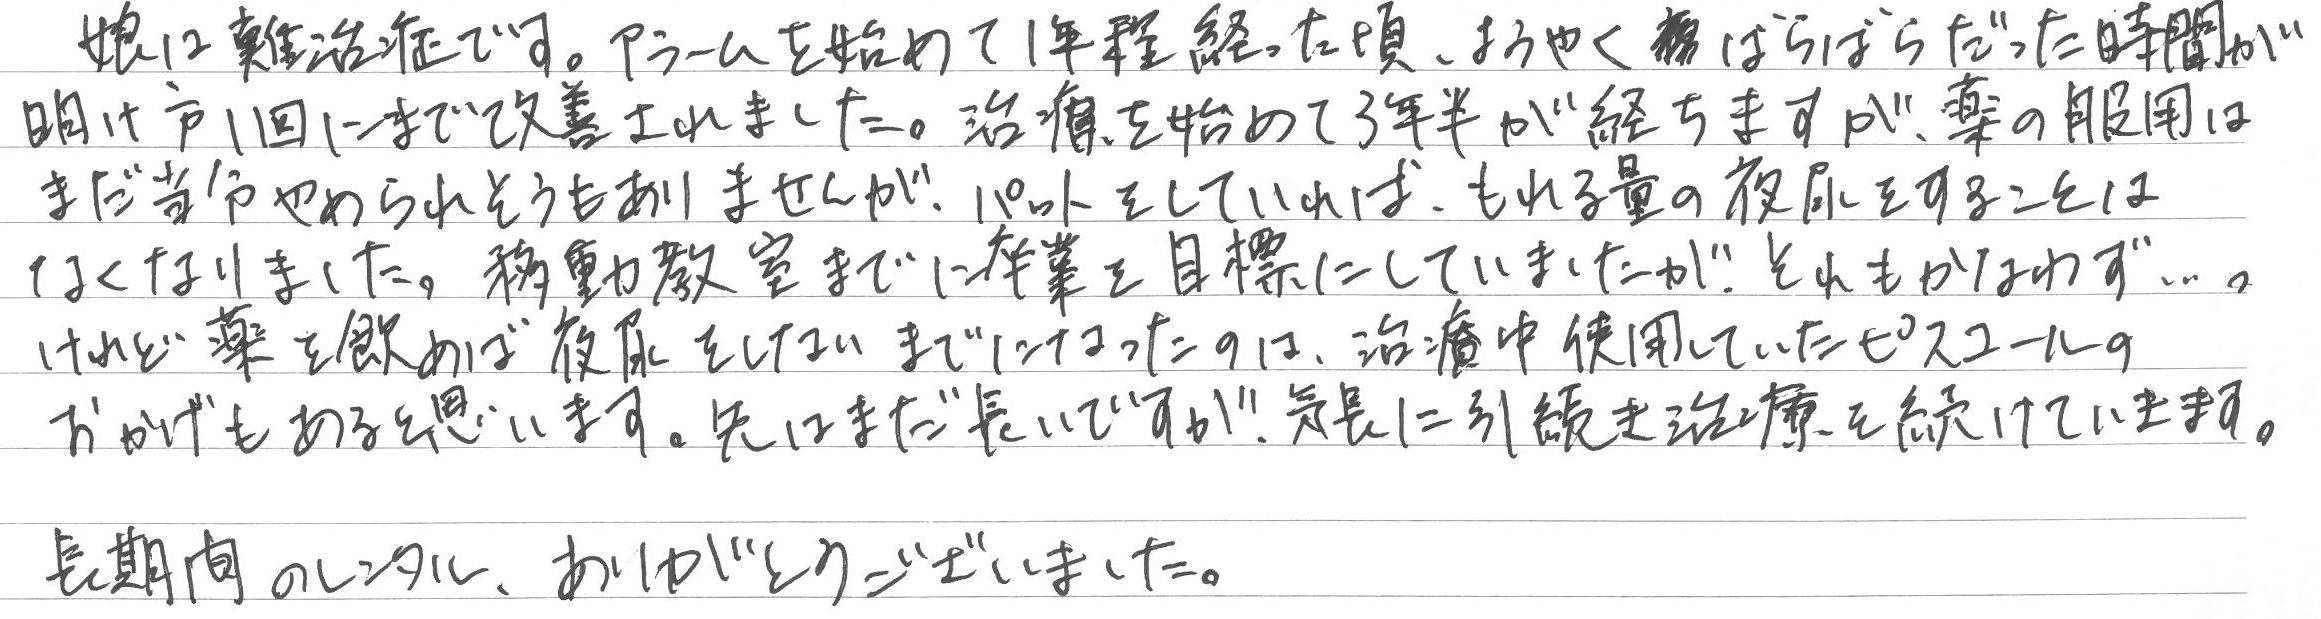 娘は難治症です。アラームを始めて1年程経った頃、ようやくばらばらだった時間が
明け方1回にまで改善されました。治療を始めて3年半が経ちますが、薬の服用は
まだ当分やめられそうもありませんが、パットをしていれば、もれる量の夜尿をすることは
なくなりました。移動教室までに卒業を目標にしていましたが、それもかなわず…。
けれど薬を飲めば夜尿をしないまでになったのは、治療中使用していたピスコールの
おかげもあると思います。先はまだ長いですが、気長に引続き治療を続けていきます。
長期間のレンタル、ありがとうございました。